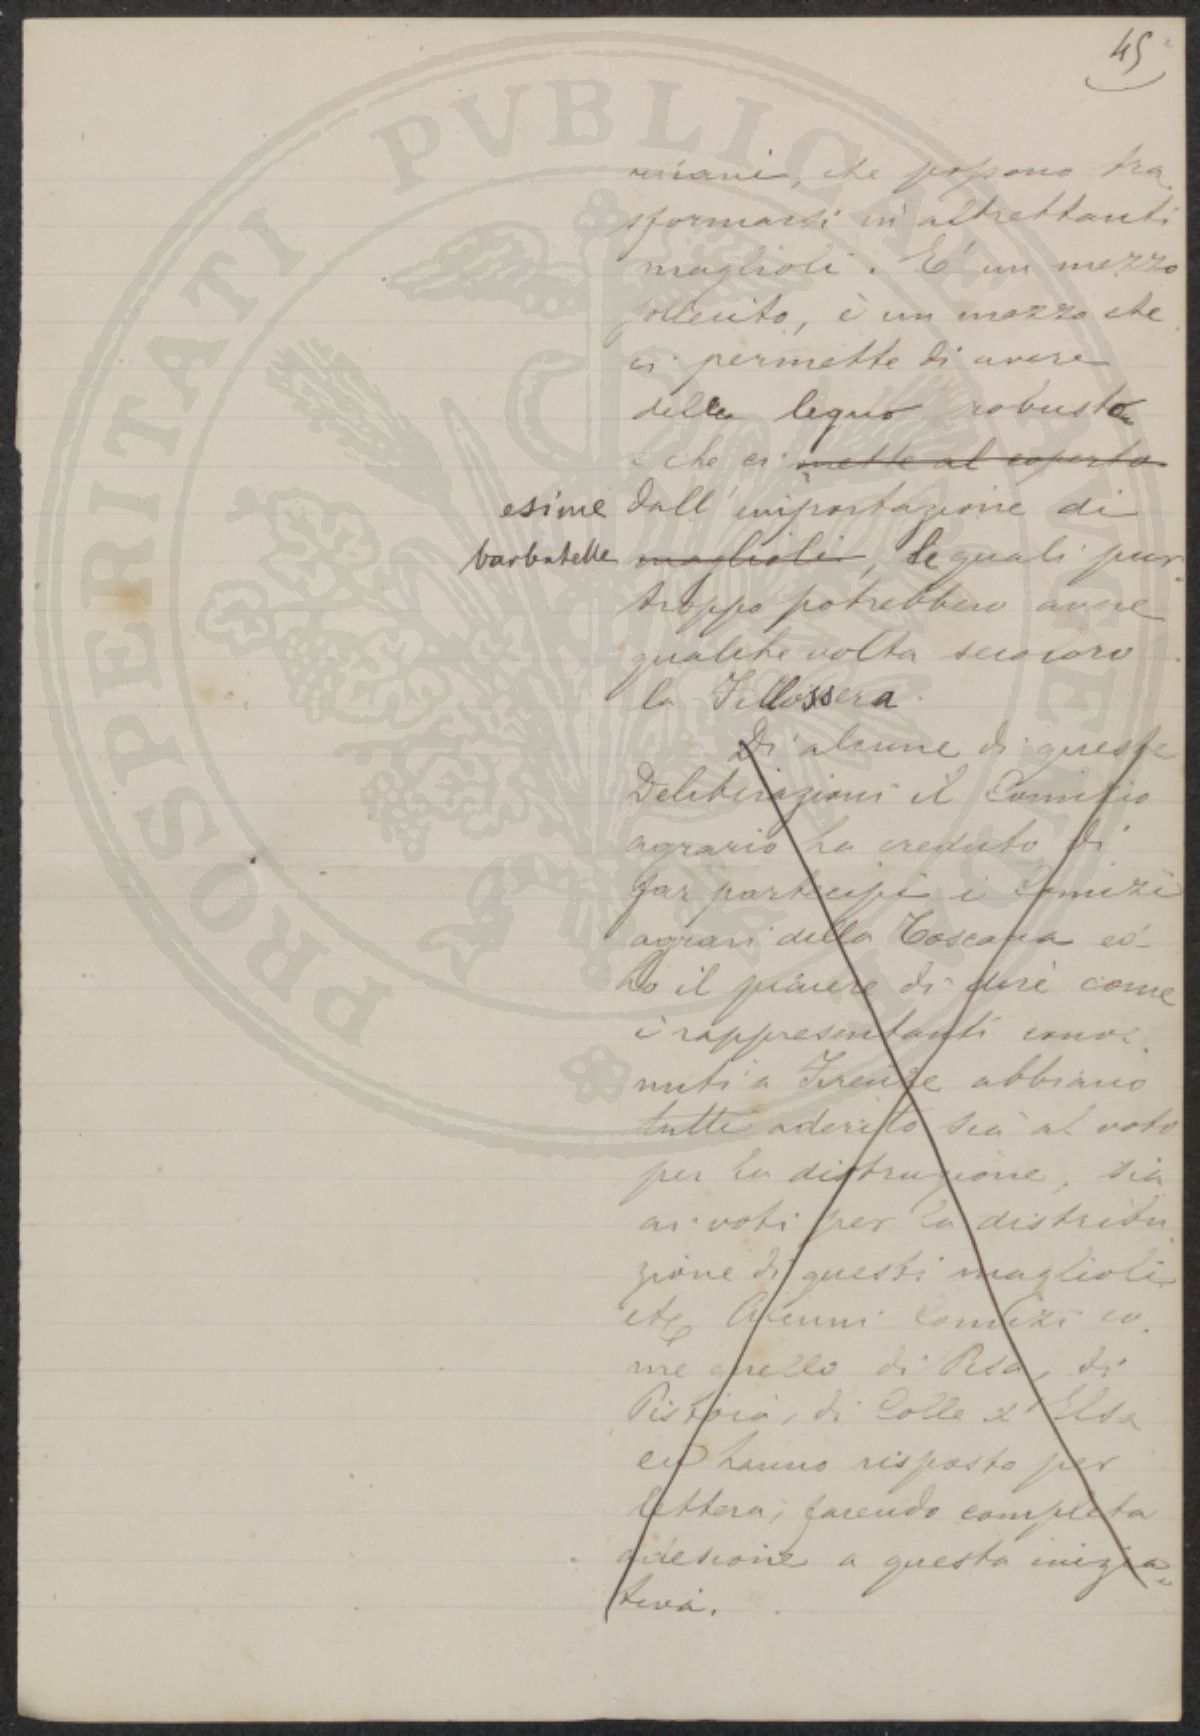 45
riciani, che possono tra
sformarsi in altrettanti
maglioli. E' un mezzo
sollecito, è un mezzo che
ci permette di avere
delle legno robusto
e che ci mette al coperto
esime dall'importazione di
barbatelle maglioli, le quali pur
troppo potrebbero avere
qualche volta seco loro
la Fillossera.
Di alcune di queste
Deliberazioni il Comizio
agrario ha creduto di
far partecipi i Comizi
agrari della Toscana ed
ho il piacere di dire come
i rappresentanti conve
nuti a Firenze abbiano
tutti aderito sia al voto
per la distruzione, sia
ai voti per la distribu
zione di questi maglioli
etc. Alcuni Comizi co
me quello di Pisa, di
Pistoia, di Colle d'Elsa
ci hanno risposto per
lettera, facendo completa
adesione a questa inizia
tiva.
PROSPERITATI PUBLICAE